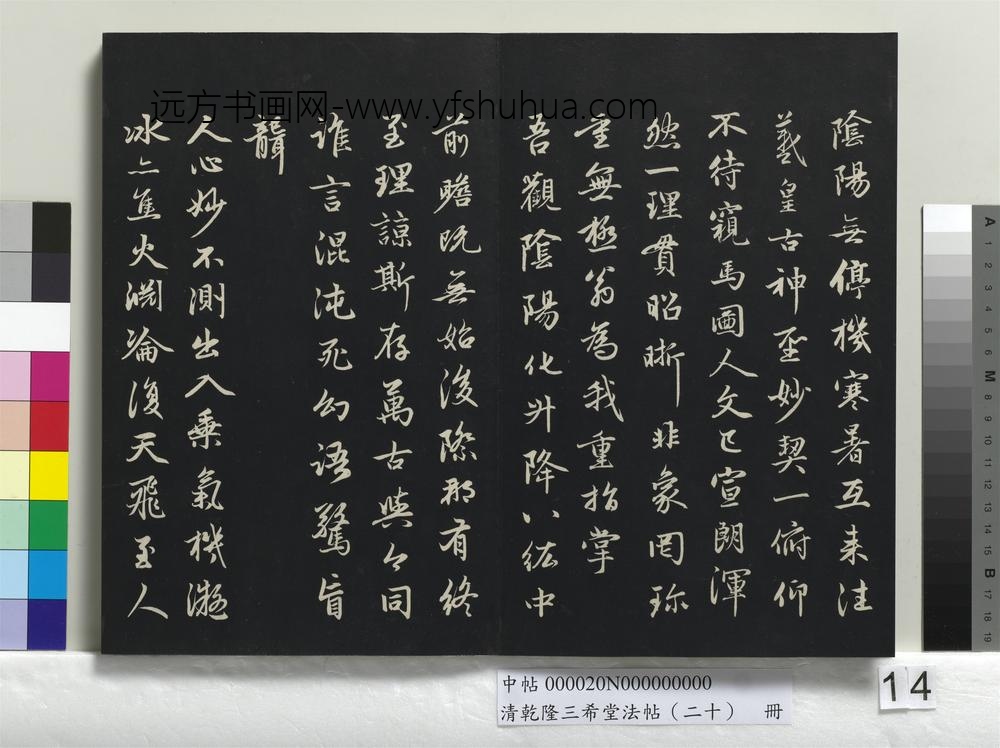 陰陽無停機寒暑互来往
羲皇古神聖妙契一俯仰
不待窺馬圖人文已宣朗渾
然一理貫昭晰非象罔珍
重無極翁為我重指掌
吾觀陰陽化升降八紘中
前瞻既無始後際那有終
至理諒斯存萬古與今同
誰言混沌死幻語驚盲
聾
人心妙不測出入乘氣機凝
冰亦焦火淵淪復天飛至人
远方书画网-www.yfshuhua.com
中帖 000020N000000000
清乾隆三希堂法帖（二十） 冊
14
A 1 2 3 4 5 6 M 8 9 10 11 12 13 14 15 B 17 18 19